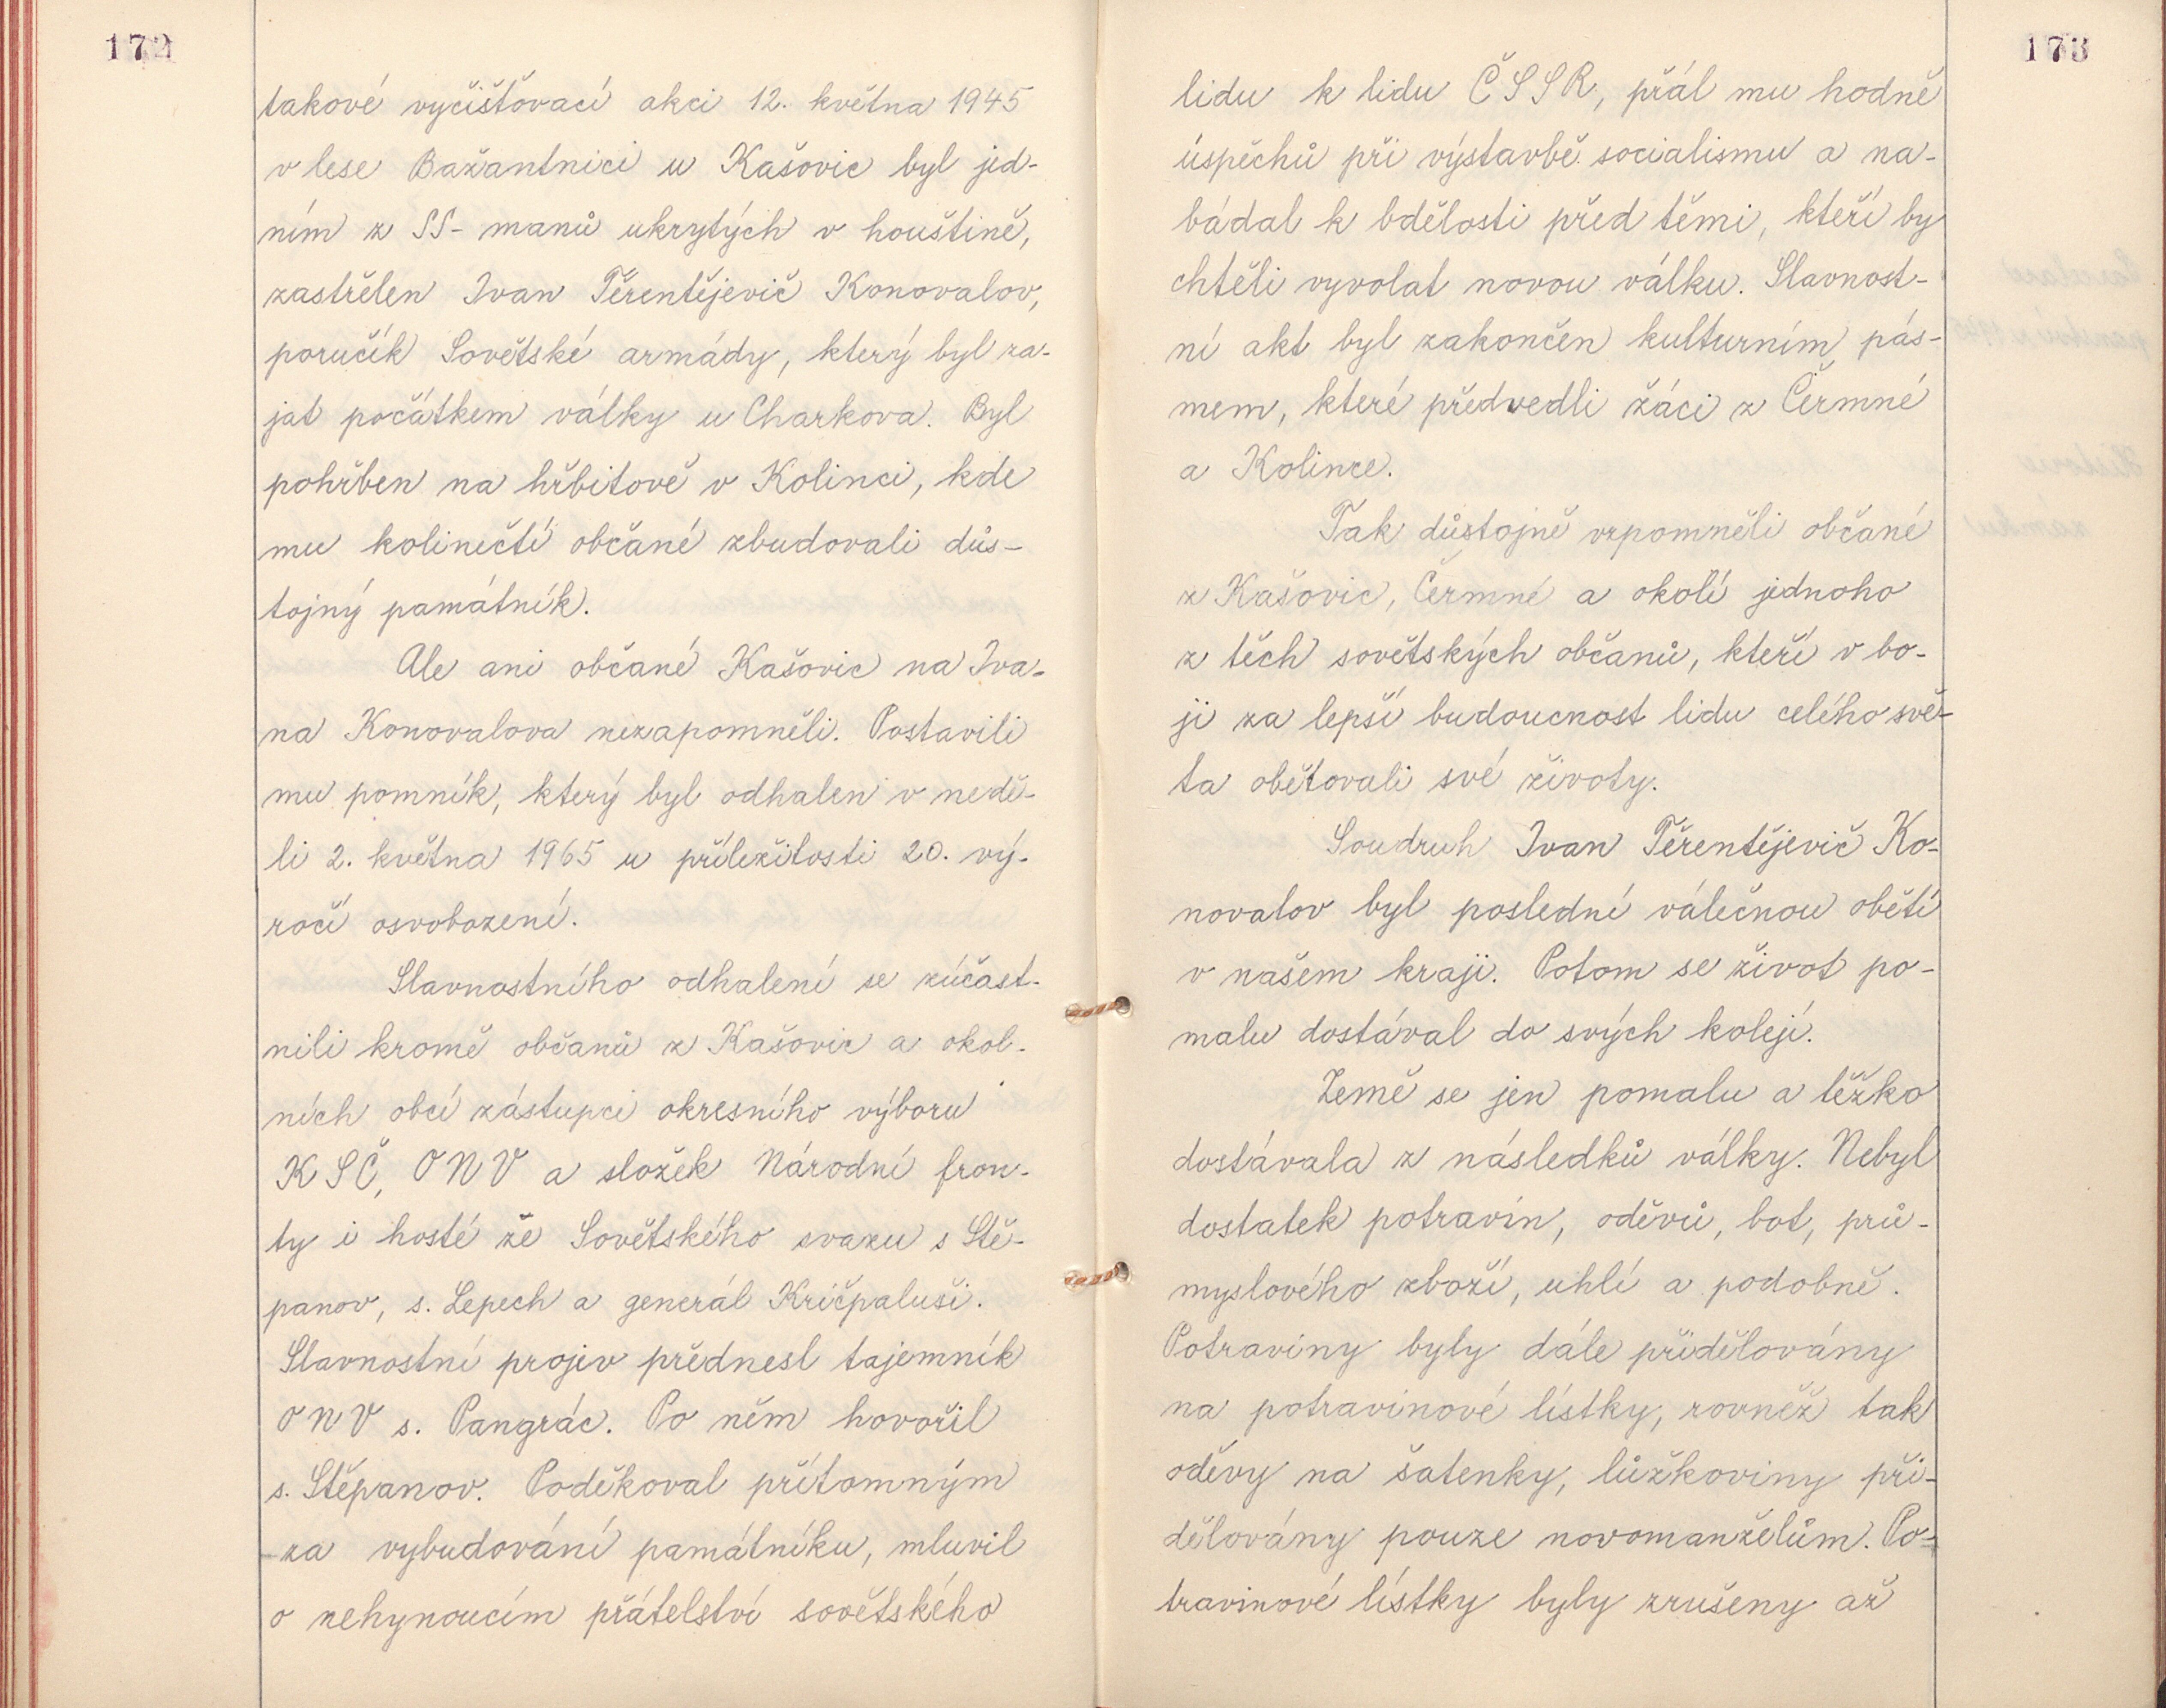 172
takové vyčišťovací akci 12. května 1945
v lese Bažantnici u Kašovic byl jed-
ním z SS-manů ukrytých v houštině,
zastřelen Ivan Těrentějevič Konovalov,
poručík Sovětské armády, který byl za-
jat počátkem války u Charkova. Byl
pohřben na hřbitově v Kolinci, kde
mu kolinečtí občané zbudovali důs-
tojný památník.
Ale ani občané Kašovic na Iva-
na Konovalova nezapomněli. Postavili
mu pomník, který byl odhalen v nedě-
li 2. května 1965 u příležitosti 20. vý-
ročí osvobození.
Slavnostního odhalení se zúčast-
nili kromě občanů z Kašovic a okol-
ních obcí zástupci okresního výboru
KSČ, ONV a složek Národní fron-
ty i hosté ze Sovětského svazu s Stě-
panov, s. Lepech a generál Kričpaluši.
Slavnostní projev přednesl tajemník
ONV s. Pangrác. Po něm hovořil
s. Stěpanov. Poděkoval přítomným
za vybudování památníku, mluvil
o nehynoucím přátelství sovětského
173
lidu k lidu ČSSR, přál mu hodně
úspěchů při výstavbě socialismu a na-
bádal k bdělosti před těmi, kteří by
chtěli vyvolat novou válku. Slavnost-
ní akt byl zakončen kulturním pás-
mem, které předvedli žáci z Čermné
a Kolince.
Tak důstojně vzpomněli občané
z Kašovic, Čermné a okolí jednoho
z těch sovětských občanů, kteří v bo-
ji za lepší budoucnost lidu celého svě-
ta obětovali své životy.
Soudruh Ivan Těrentějevič Ko-
novalov byl poslední válečnou obětí
v našem kraji. Potom se život po-
malu dostával do svých kolejí.
Země se jen pomalu a těžko
dostávala z následků války. Nebyl
dostatek potravin, oděvů, bot, prů-
myslového zboží, uhlí a podobně.
Potraviny byly dále přidělovány
na potravinové lístky, rovněž tak
oděvy na šatenky, lůžkoviny při-
dělovány pouze novomanželům. Po-
travinové lístky byly zrušeny až